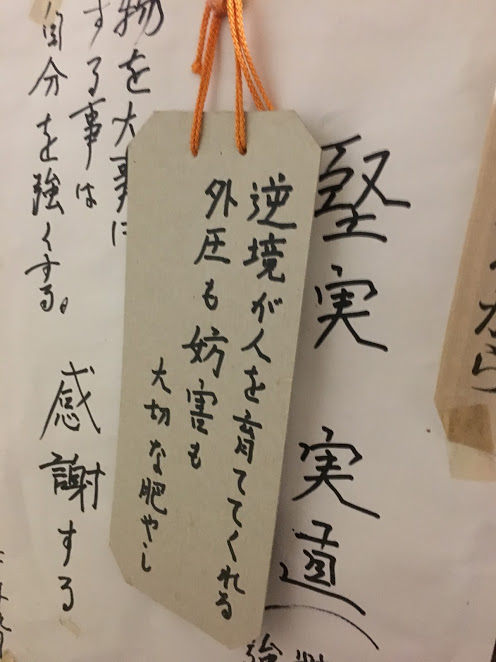 から
堅実 実直
逆境が人を育ててくれる
外圧も妨害も
大切な肥やし
物を大事に
する事は
自分を強くする。
感謝する